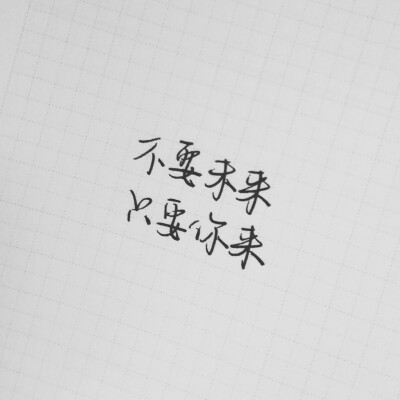 不要未来
只要你来